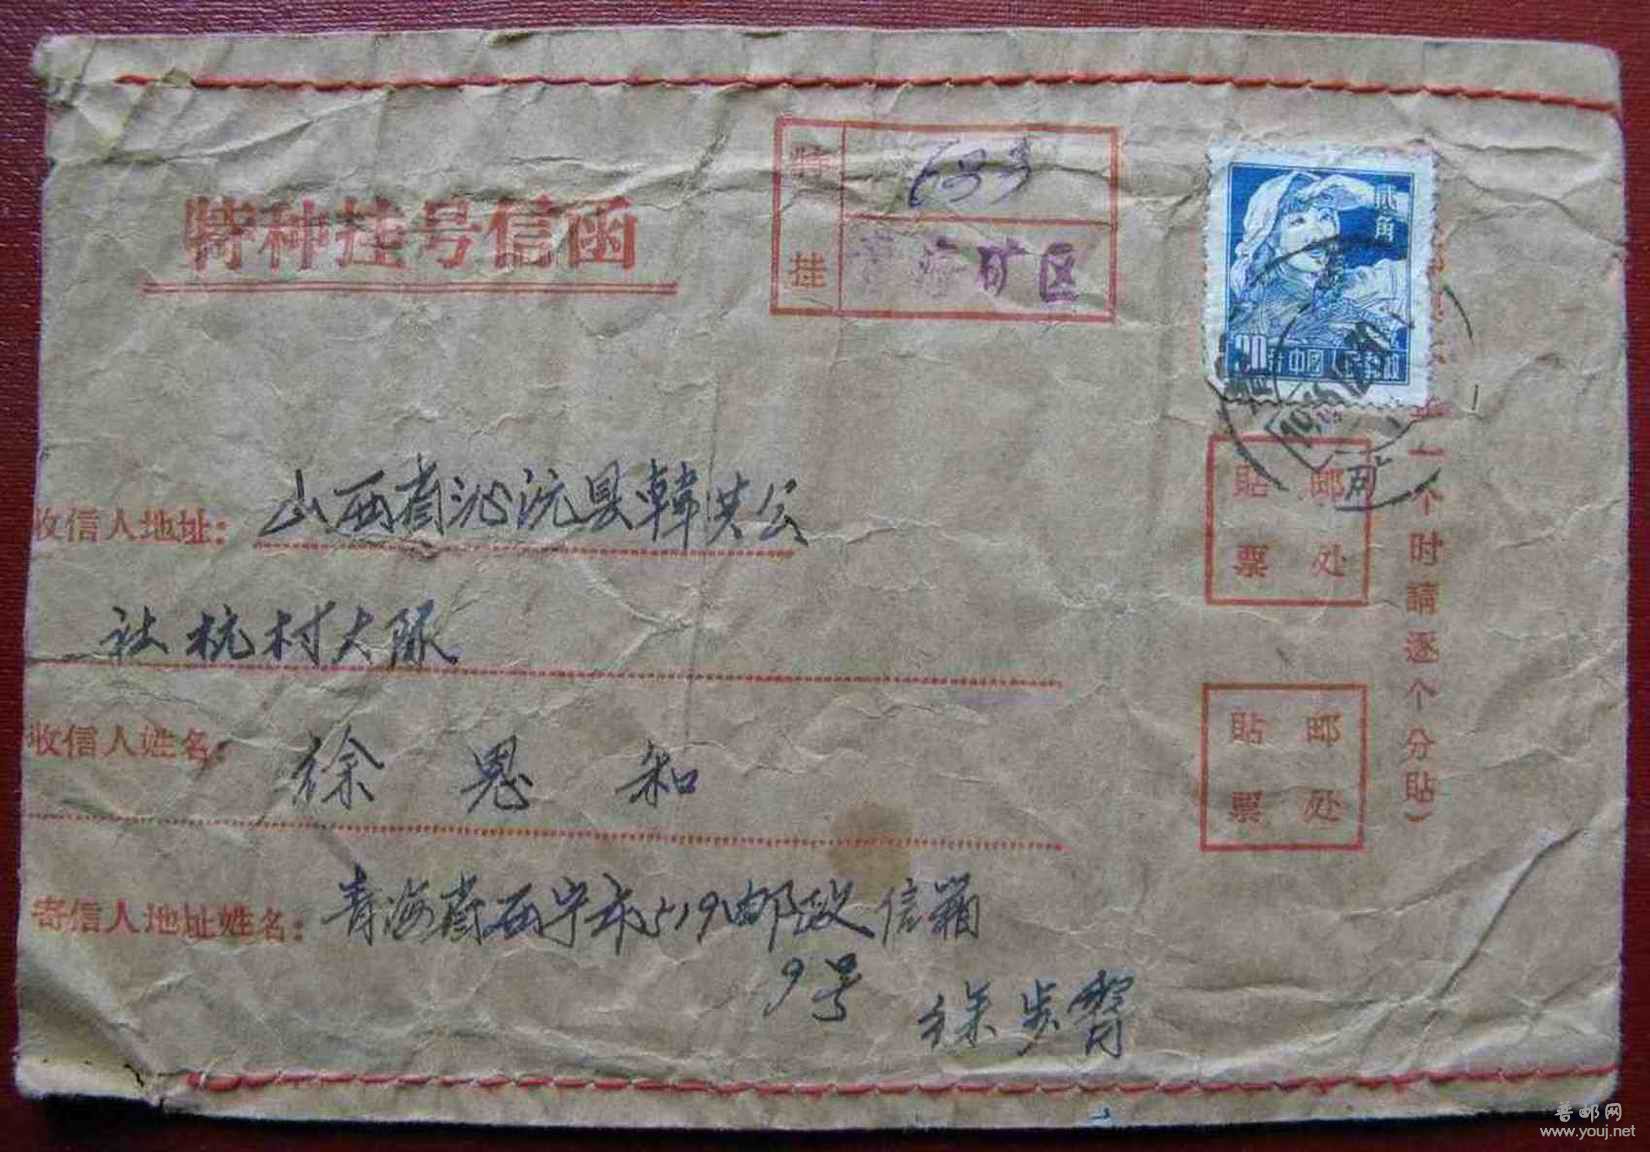 特种挂号信函
特
挂
633
青海矿区
贰角
20分 中國人民邮政
收信人地址：山西省沁沅县韓洪公
社杭村大队
收信人姓名：徐恩和
寄信人地址姓名：青海省西宁市519邮政信箱
9号 徐步霄
貼邮
票处
貼邮
票处
一个时請逐个分貼)
普邮网
www.youj.net